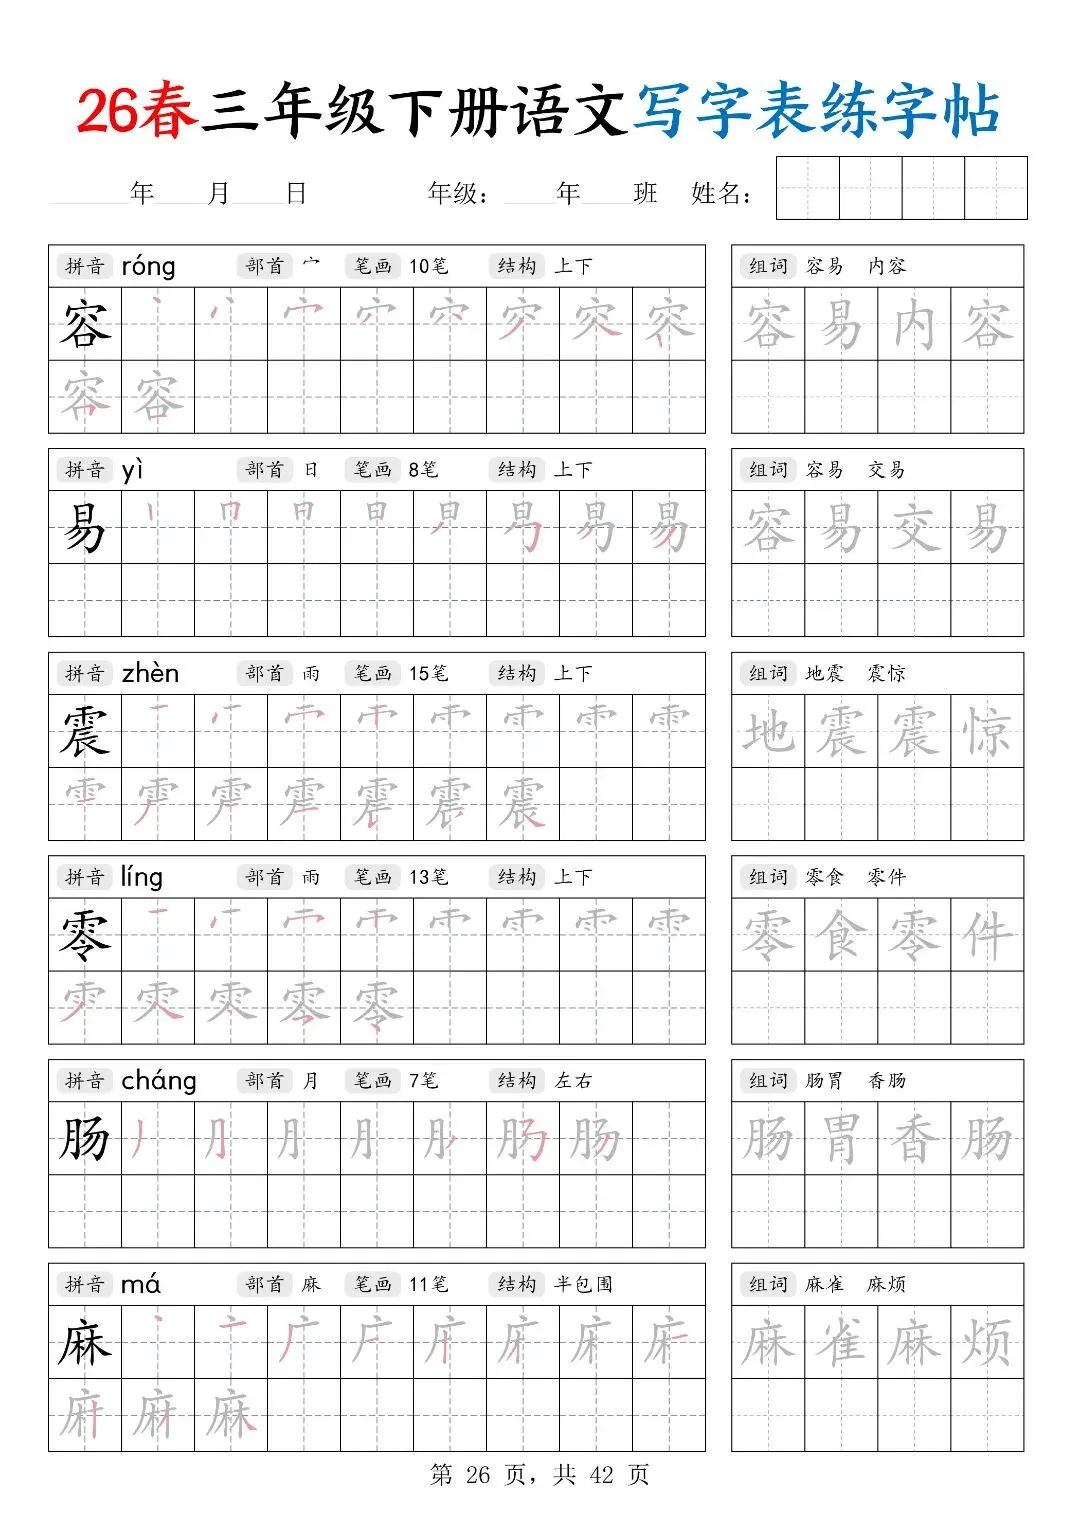 26春三年级下册语文写字表练字帖
年 月 日 年级： 年 班 姓名：
拼音 róng 部首 宀 笔画 10笔 结构 上下 组词 容易 内容
容 容 易 内 容
容 容
拼音 yì 部首 日 笔画 8笔 结构 上下 组词 容易 交易
易 易 容 易 交 易
拼音 zhèn 部首 雨 笔画 15笔 结构 上下 组词 地震 震惊
震 地 震 震 惊
震
拼音 líng 部首 雨 笔画 13笔 结构 上下 组词 零食 零件
零 零 食 零 件
零
拼音 cháng 部首 月 笔画 7笔 结构 左右 组词 肠胃 香肠
肠 肠 肠 胃 香 肠
拼音 má 部首 麻 笔画 11笔 结构 半包围 组词 麻雀 麻烦
麻 麻 雀 麻 烦
麻
第 26 页，共 42 页